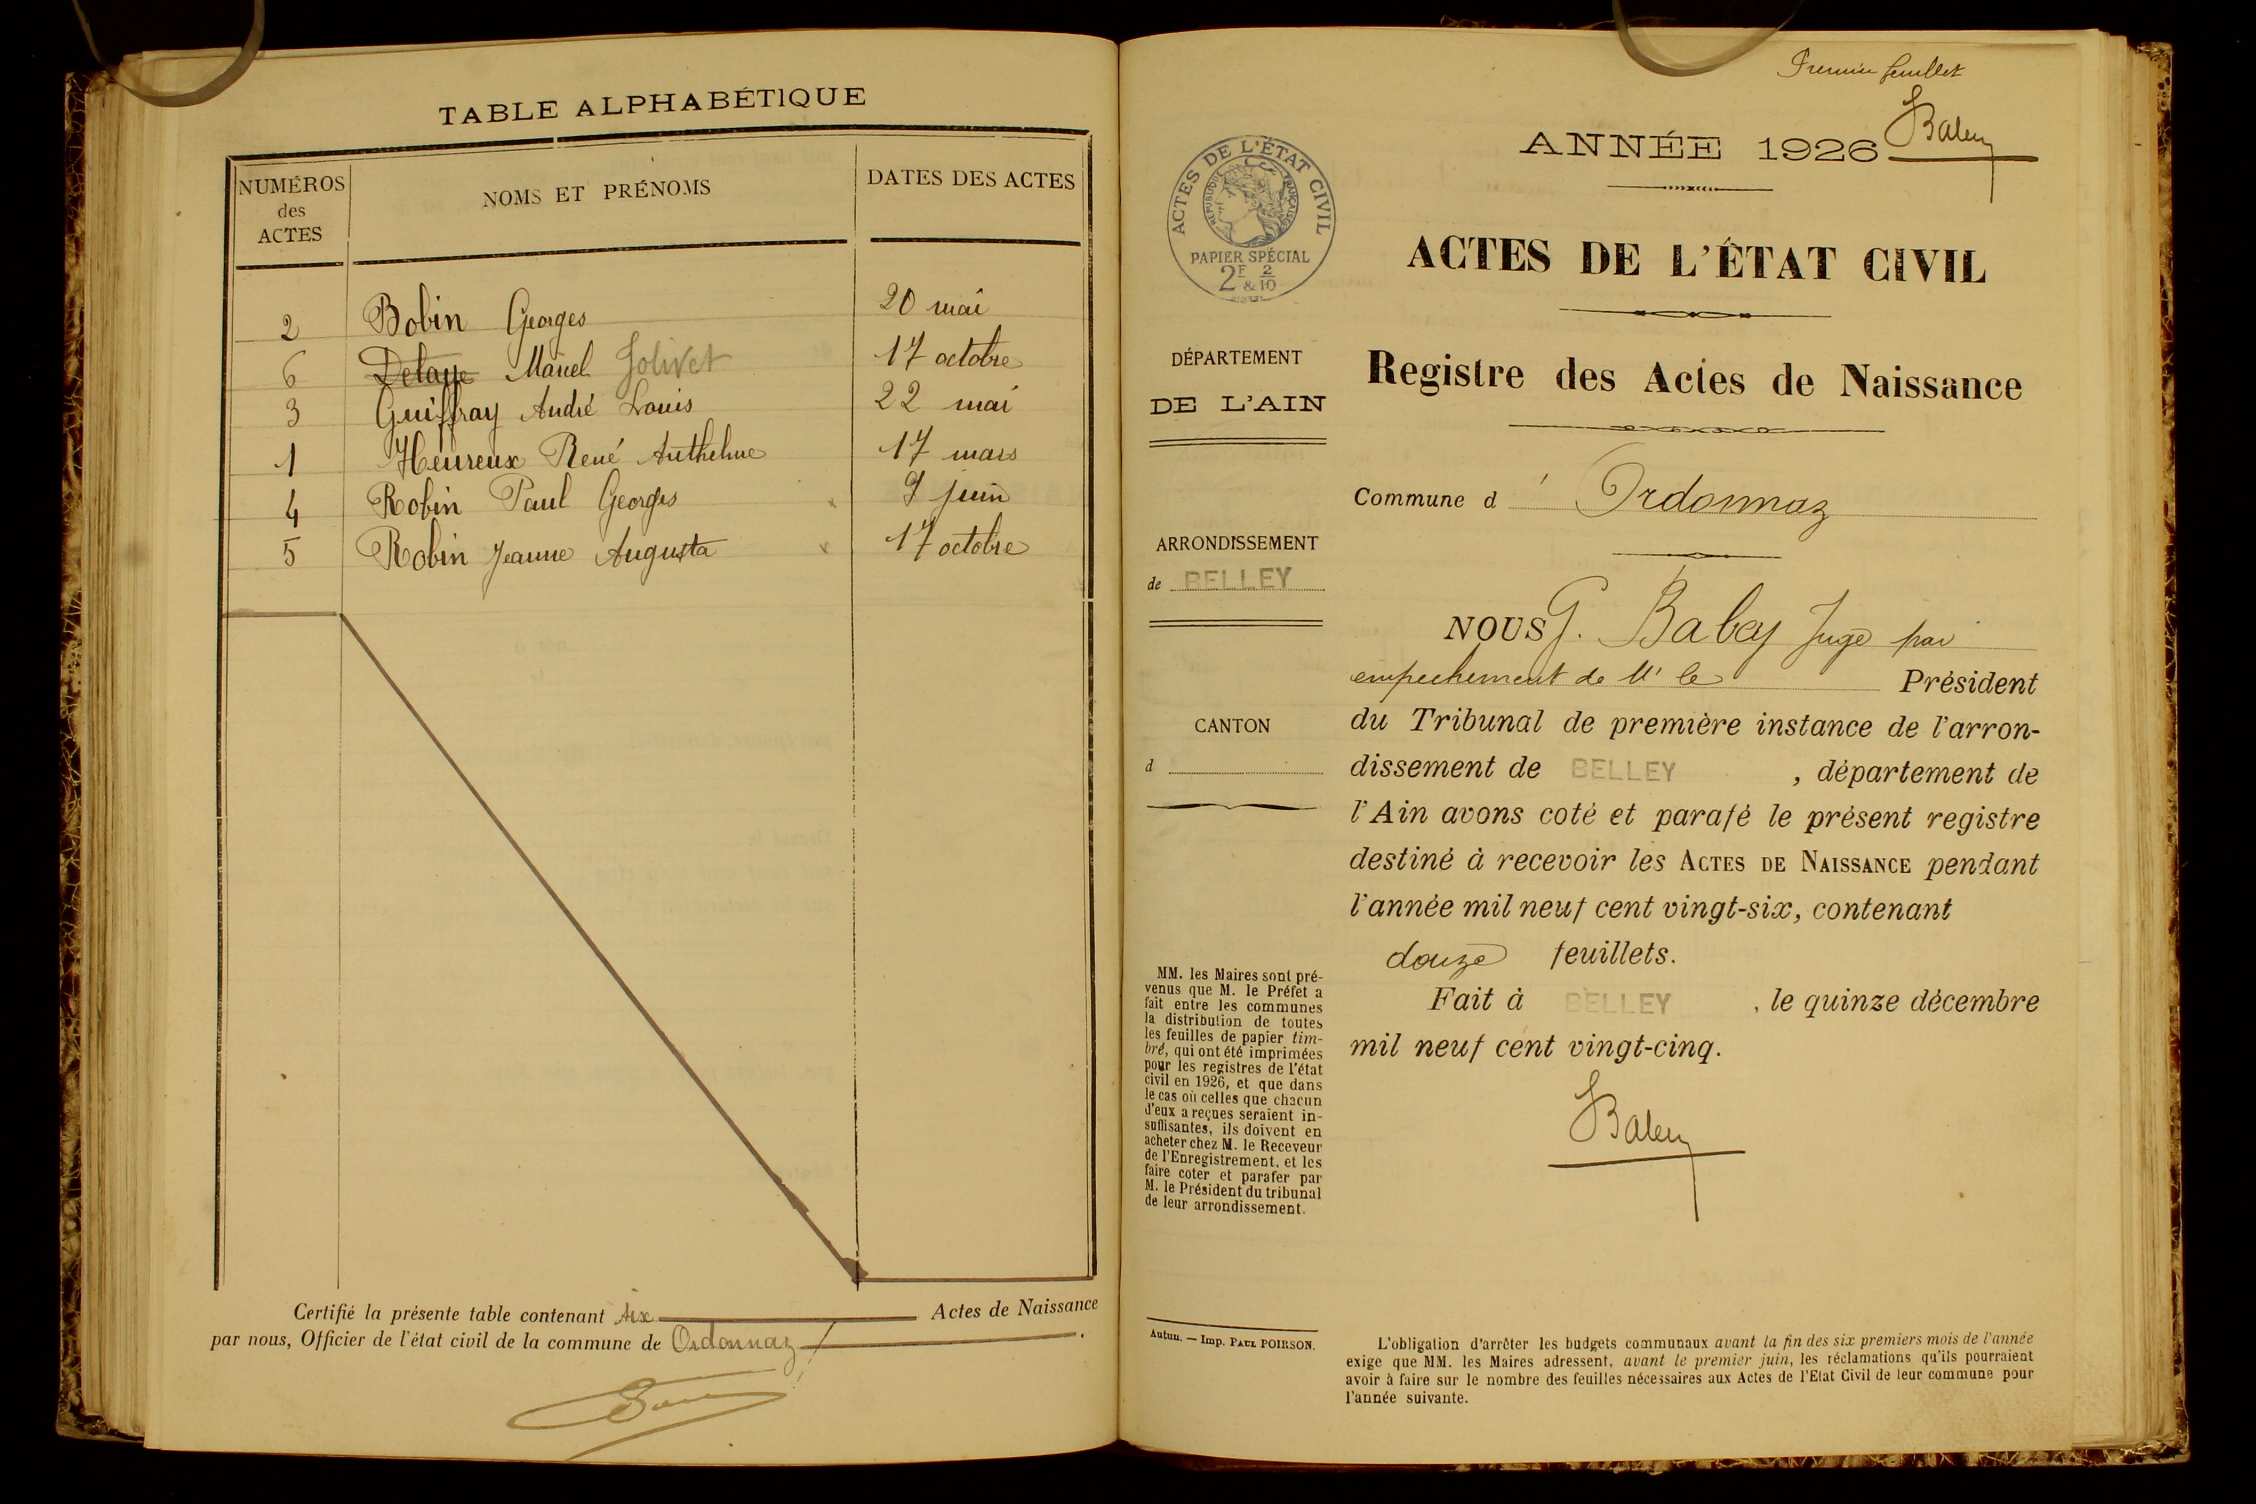 TABLE ALPHABÉTIQUE
NUMÉROS des ACTES
NOMS ET PRÉNOMS
DATES DES ACTES
2 Bobin Georges 20 mai
6 Delaye Marcel Jolivet 17 octobre
3 Guiffray André Louis 22 mai
1 Heureux René Anthelme 17 mars
4 Robin Paul Georges 9 juin
5 Robin Jeanne Augusta 17 octobre
Certifié la présente table contenant six Actes de Naissance
par nous, Officier de l'état civil de la commune de Ordonnaz
Premier feuillet
ANNÉE 1926
ACTES DE L'ÉTAT CIVIL
RÉPUBLIQUE FRANÇAISE
PAPIER SPÉCIAL
2F & 2/10
ACTES DE L'ÉTAT CIVIL
Registre des Actes de Naissance
DÉPARTEMENT
DE L'AIN
ARRONDISSEMENT
de BELLEY
CANTON
d
MM. les Maires sont pré-
venus que M. le Préfet a
fait entre les communes
la distribution de toutes
les feuilles de papier tim-
bré, qui ont été imprimées
pour les registres de l'état
civil en 1926, et que dans
le cas où celles que chacun
d'eux a reçues seraient in-
suffisantes, ils doivent en
acheter chez M. le Receveur
de l'Enregistrement, et les
faire coter et parafer par
M. le Président du tribunal
de leur arrondissement.
Autun. — Imp. PAUL POIRSON.
Commune d' Ordonnaz
NOUS G. Baley Juge par
empechement de Mr le Président
du Tribunal de première instance de l'arron-
dissement de BELLEY, département de
l'Ain avons coté et parafé le présent registre
destiné à recevoir les ACTES DE NAISSANCE pendant
l'année mil neuf cent vingt-six, contenant
douze feuillets.
Fait à BELLEY, le quinze décembre
mil neuf cent vingt-cinq.
L'obligation d'arrêter les budgets communaux avant la fin des six premiers mois de l'année
exige que MM. les Maires adressent, avant le premier juin, les réclamations qu'ils pourraient
avoir à faire sur le nombre des feuilles nécessaires aux Actes de l'Etat Civil de leur commune pour
l'année suivante.